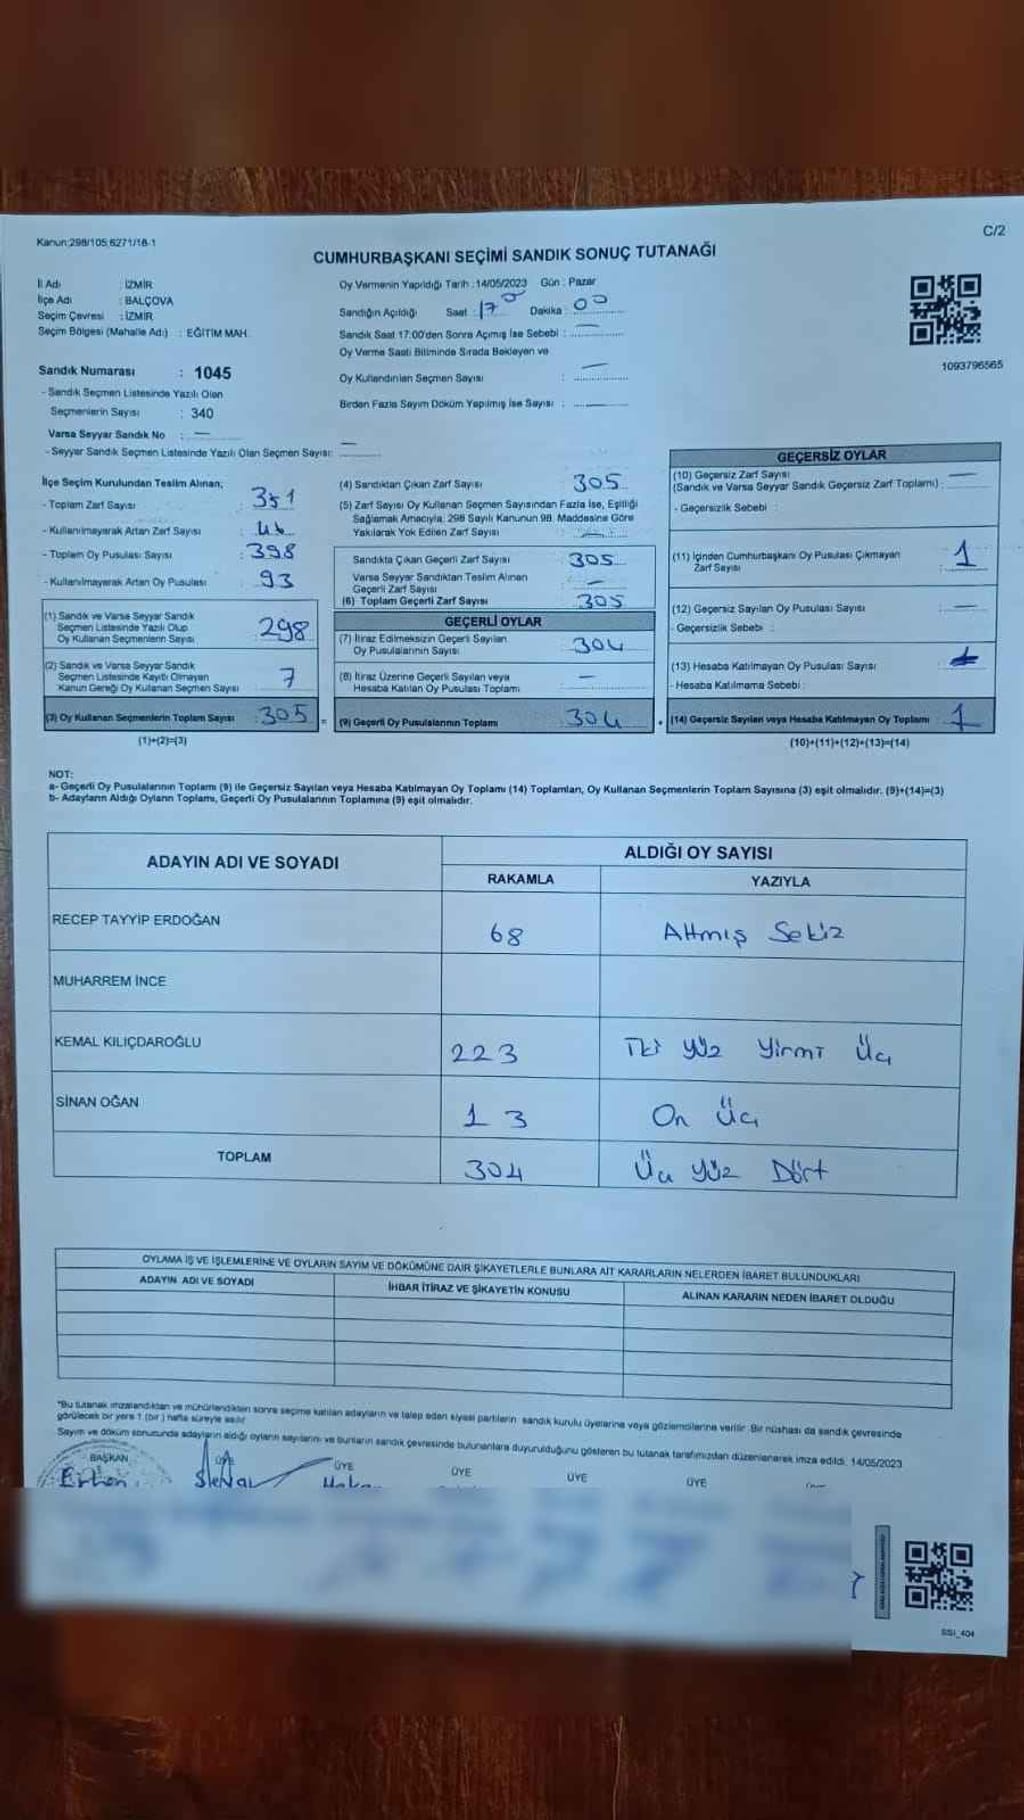 Kanun:298/105;6271/18-1
C/2
CUMHURBAŞKANI SEÇİMİ SANDIK SONUÇ TUTANAĞI
İl Adı : İZMİR
İlçe Adı : BALÇOVA
Seçim Çevresi : İZMİR
Seçim Bölgesi (Mahalle Adı) : EĞİTİM MAH.
Oy Vermenin Yapıldığı Tarih : 14/05/2023 Gün : Pazar
Sandığın Açıldığı Saat : 17 00 Dakika : 00
Sandık Saat 17:00'den Sonra Açımış İse Sebebi : —
Oy Verme Saati Bitiminde Sırada Bekleyen ve
Oy Kullandırılan Seçmen Sayısı : —
Birden Fazla Sayım Döküm Yapılmış İse Sayısı : —
1093796565
Sandık Numarası : 1045
- Sandık Seçmen Listesinde Yazılı Olan
Seçmenlerin Sayısı : 340
Varsa Seyyar Sandık No : —
- Seyyar Sandık Seçmen Listesinde Yazılı Olan Seçmen Sayısı: —
İlçe Seçim Kurulundan Teslim Alınan;
- Toplam Zarf Sayısı : 351
- Kullanılmayarak Artan Zarf Sayısı : 46
- Toplam Oy Pusulası Sayısı : 398
- Kullanılmayarak Artan Oy Pusulası : 93
(1) Sandık ve Varsa Seyyar Sandık
Seçmen Listesinde Yazılı Olup
Oy Kullanan Seçmenlerin Sayısı : 298
(2) Sandık ve Varsa Seyyar Sandık
Seçmen Listesinde Kayıtlı Olmayan
Kanun Gereği Oy Kullanan Seçmen Sayısı : 7
(3) Oy Kullanan Seçmenlerin Toplam Sayısı : 305
(1)+(2)=(3)
(4) Sandıktan Çıkan Zarf Sayısı : 305
(5) Zarf Sayısı Oy Kullanan Seçmen Sayısından Fazla İse, Eşitliği
Sağlamak Amacıyla; 298 Sayılı Kanunun 98. Maddesine Göre
Yakılarak Yok Edilen Zarf Sayısı : —
Sandıkta Çıkan Geçerli Zarf Sayısı : 305
Varsa Seyyar Sandıktan Teslim Alınan
Geçerli Zarf Sayısı : —
(6) Toplam Geçerli Zarf Sayısı : 305
GEÇERLİ OYLAR
(7) İtiraz Edilmeksizin Geçerli Sayılan
Oy Pusulalarının Sayısı : 304
(8) İtiraz Üzerine Geçerli Sayılan veya
Hesaba Katılan Oy Pusulası Toplamı : —
(9) Geçerli Oy Pusulalarının Toplamı : 304
GEÇERSİZ OYLAR
(10) Geçersiz Zarf Sayısı
(Sandık ve Varsa Seyyar Sandık Geçersiz Zarf Toplamı) : —
- Geçersizlik Sebebi :
(11) İçinden Cumhurbaşkanı Oy Pusulası Çıkmayan
Zarf Sayısı : 1
(12) Geçersiz Sayılan Oy Pusulası Sayısı : —
- Geçersizlik Sebebi :
(13) Hesaba Katılmayan Oy Pusulası Sayısı :
- Hesaba Katılmama Sebebi :
(14) Geçersiz Sayılan veya Hesaba Katılmayan Oy Toplamı : 1
(10)+(11)+(12)+(13)=(14)
NOT:
a- Geçerli Oy Pusulalarının Toplamı (9) ile Geçersiz Sayılan veya Hesaba Katılmayan Oy Toplamı (14) Toplamları, Oy Kullanan Seçmenlerin Toplam Sayısına (3) eşit olmalıdır. (9)+(14)=(3)
b- Adayların Aldığı Oyların Toplamı, Geçerli Oy Pusulalarının Toplamına (9) eşit olmalıdır.
ADAYIN ADI VE SOYADI
ALDIĞI OY SAYISI
RAKAMLA YAZIYLA
RECEP TAYYİP ERDOĞAN 68 Altmış Sekiz
MUHARREM İNCE
KEMAL KILIÇDAROĞLU 223 İki yüz yirmi Üç
SİNAN OĞAN 13 On Üç
TOPLAM 304 Üç yüz Dört
OYLAMA İŞ VE İŞLEMLERİNE VE OYLARIN SAYIM VE DÖKÜMÜNE DAİR ŞİKAYETLERLE BUNLARA AİT KARARLARIN NELERDEN İBARET BULUNDUKLARI
ADAYIN ADI VE SOYADI İHBAR İTİRAZ VE ŞİKAYETİN KONUSU ALINAN KARARIN NEDEN İBARET OLDUĞU
"Bu tutanak imzalandıktan ve mühürlendikten sonra seçime katılan adayların ve talep eden siyasi partilerin sandık kurulu üyelerine veya gözlemcilerine verilir. Bir nüshası da sandık çevresinde
görülecek bir yere 1 (bir) hafta süreyle asılır.
Sayım ve döküm sonucunda adayların aldığı oyların sayılarını ve bunların sandık çevresinde bulunanlara duyurulduğunu gösteren bu tutanak tarafımızdan düzenlenerek imza edildi. 14/05/2023
BAŞKAN ÜYE ÜYE ÜYE ÜYE ÜYE
SSI_404